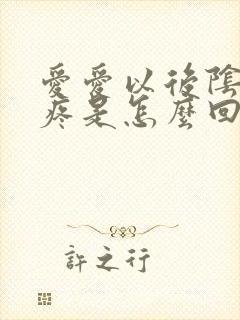 愛愛以後陰
疼是怎麼回
許之行